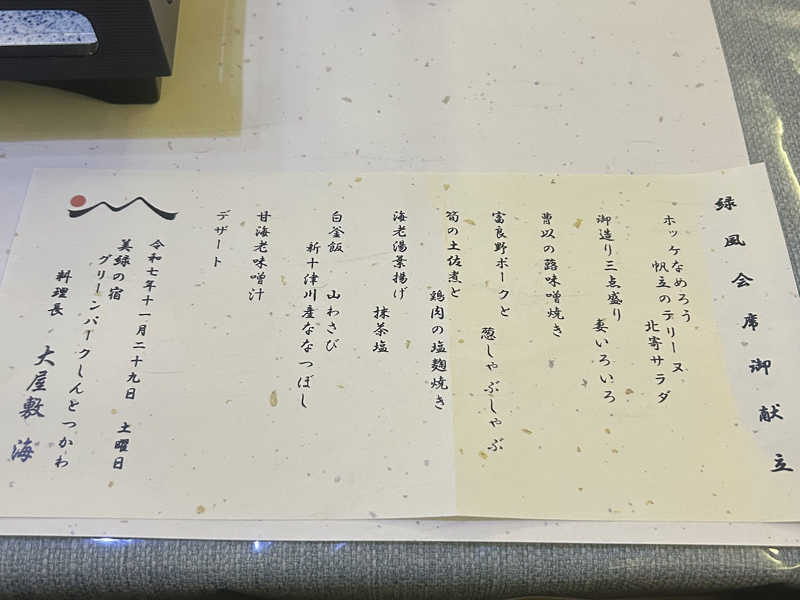 緑風会席御献立
ホッケなめろう
帆立のテリーヌ
北寄サラダ
御造り三点盛り　妻いろいろ
曹以の蕗味噌焼き
富良野ポークと　葱しゃぶしゃぶ
筍の土佐煮と
鶏肉の塩麹焼き
海老湯葉揚げ
抹茶塩
白釜飯　山わさび
新十津川産ななつぼし
甘海老味噌汁
デザート
令和七年十一月二十九日　土曜日
美緑の宿
グリーンパークしんとつかわ
料理長　大屋敷　海